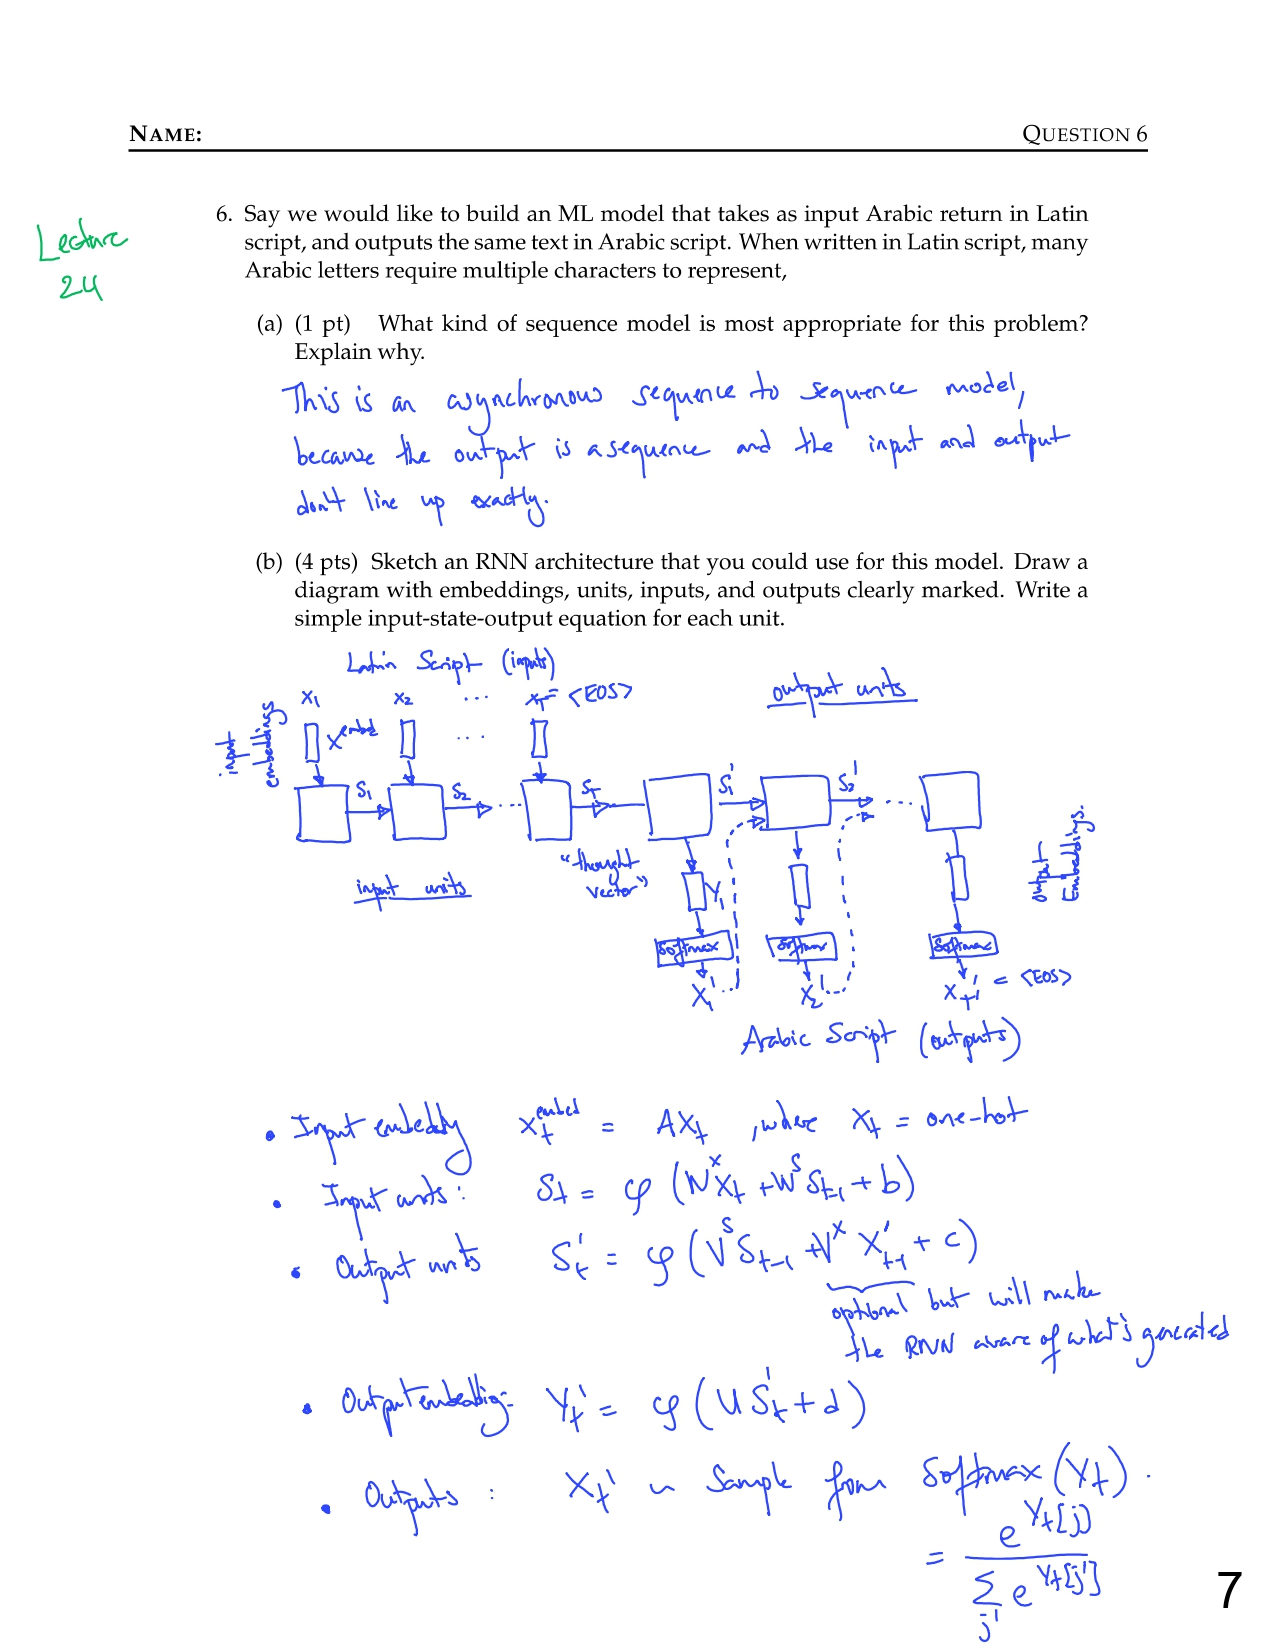 NAME:
QUESTION 6
Lecture
24
6. Say we would like to build an ML model that takes as input Arabic return in Latin
script, and outputs the same text in Arabic script. When written in Latin script, many
Arabic letters require multiple characters to represent,
(a) (1 pt) What kind of sequence model is most appropriate for this problem?
Explain why.
This is an asynchronous sequence to sequence model,
because the output is a sequence and the input and output
don't line up exactly.
(b) (4 pts) Sketch an RNN architecture that you could use for this model. Draw a
diagram with embeddings, units, inputs, and outputs clearly marked. Write a
simple input-state-output equation for each unit.
Latin Script (inputs)
x₁ x₂ ... x_T = <EOS>
output units
input embeddings
x^embed ...
S₁ S₂ ... S_T S₁' S₂' ...
"thought
vector"
input units
Y₁
Output Embeddings
Softmax Softmax Softmax
X₁' ... X₂' ... X_T'' = <EOS>
Arabic Script (outputs)
• Input embeddg x_t^embed = A X_t , where X_t = one-hot
• Input units: S_t = φ (W^x X_t + W^s S_t-1 + b)
• Output units S_t' = φ (V^s S_t-1 + V^x X'_t-1 + c)
optional but will make
the RNN aware of what's generated
• Output embedding: Y_t' = φ (U S_t' + d)
• Outputs : X_t' ~ Sample from Softmax (Y_t) .
= e^Y_t[j] / Σ_j' e^Y_t[j']
7